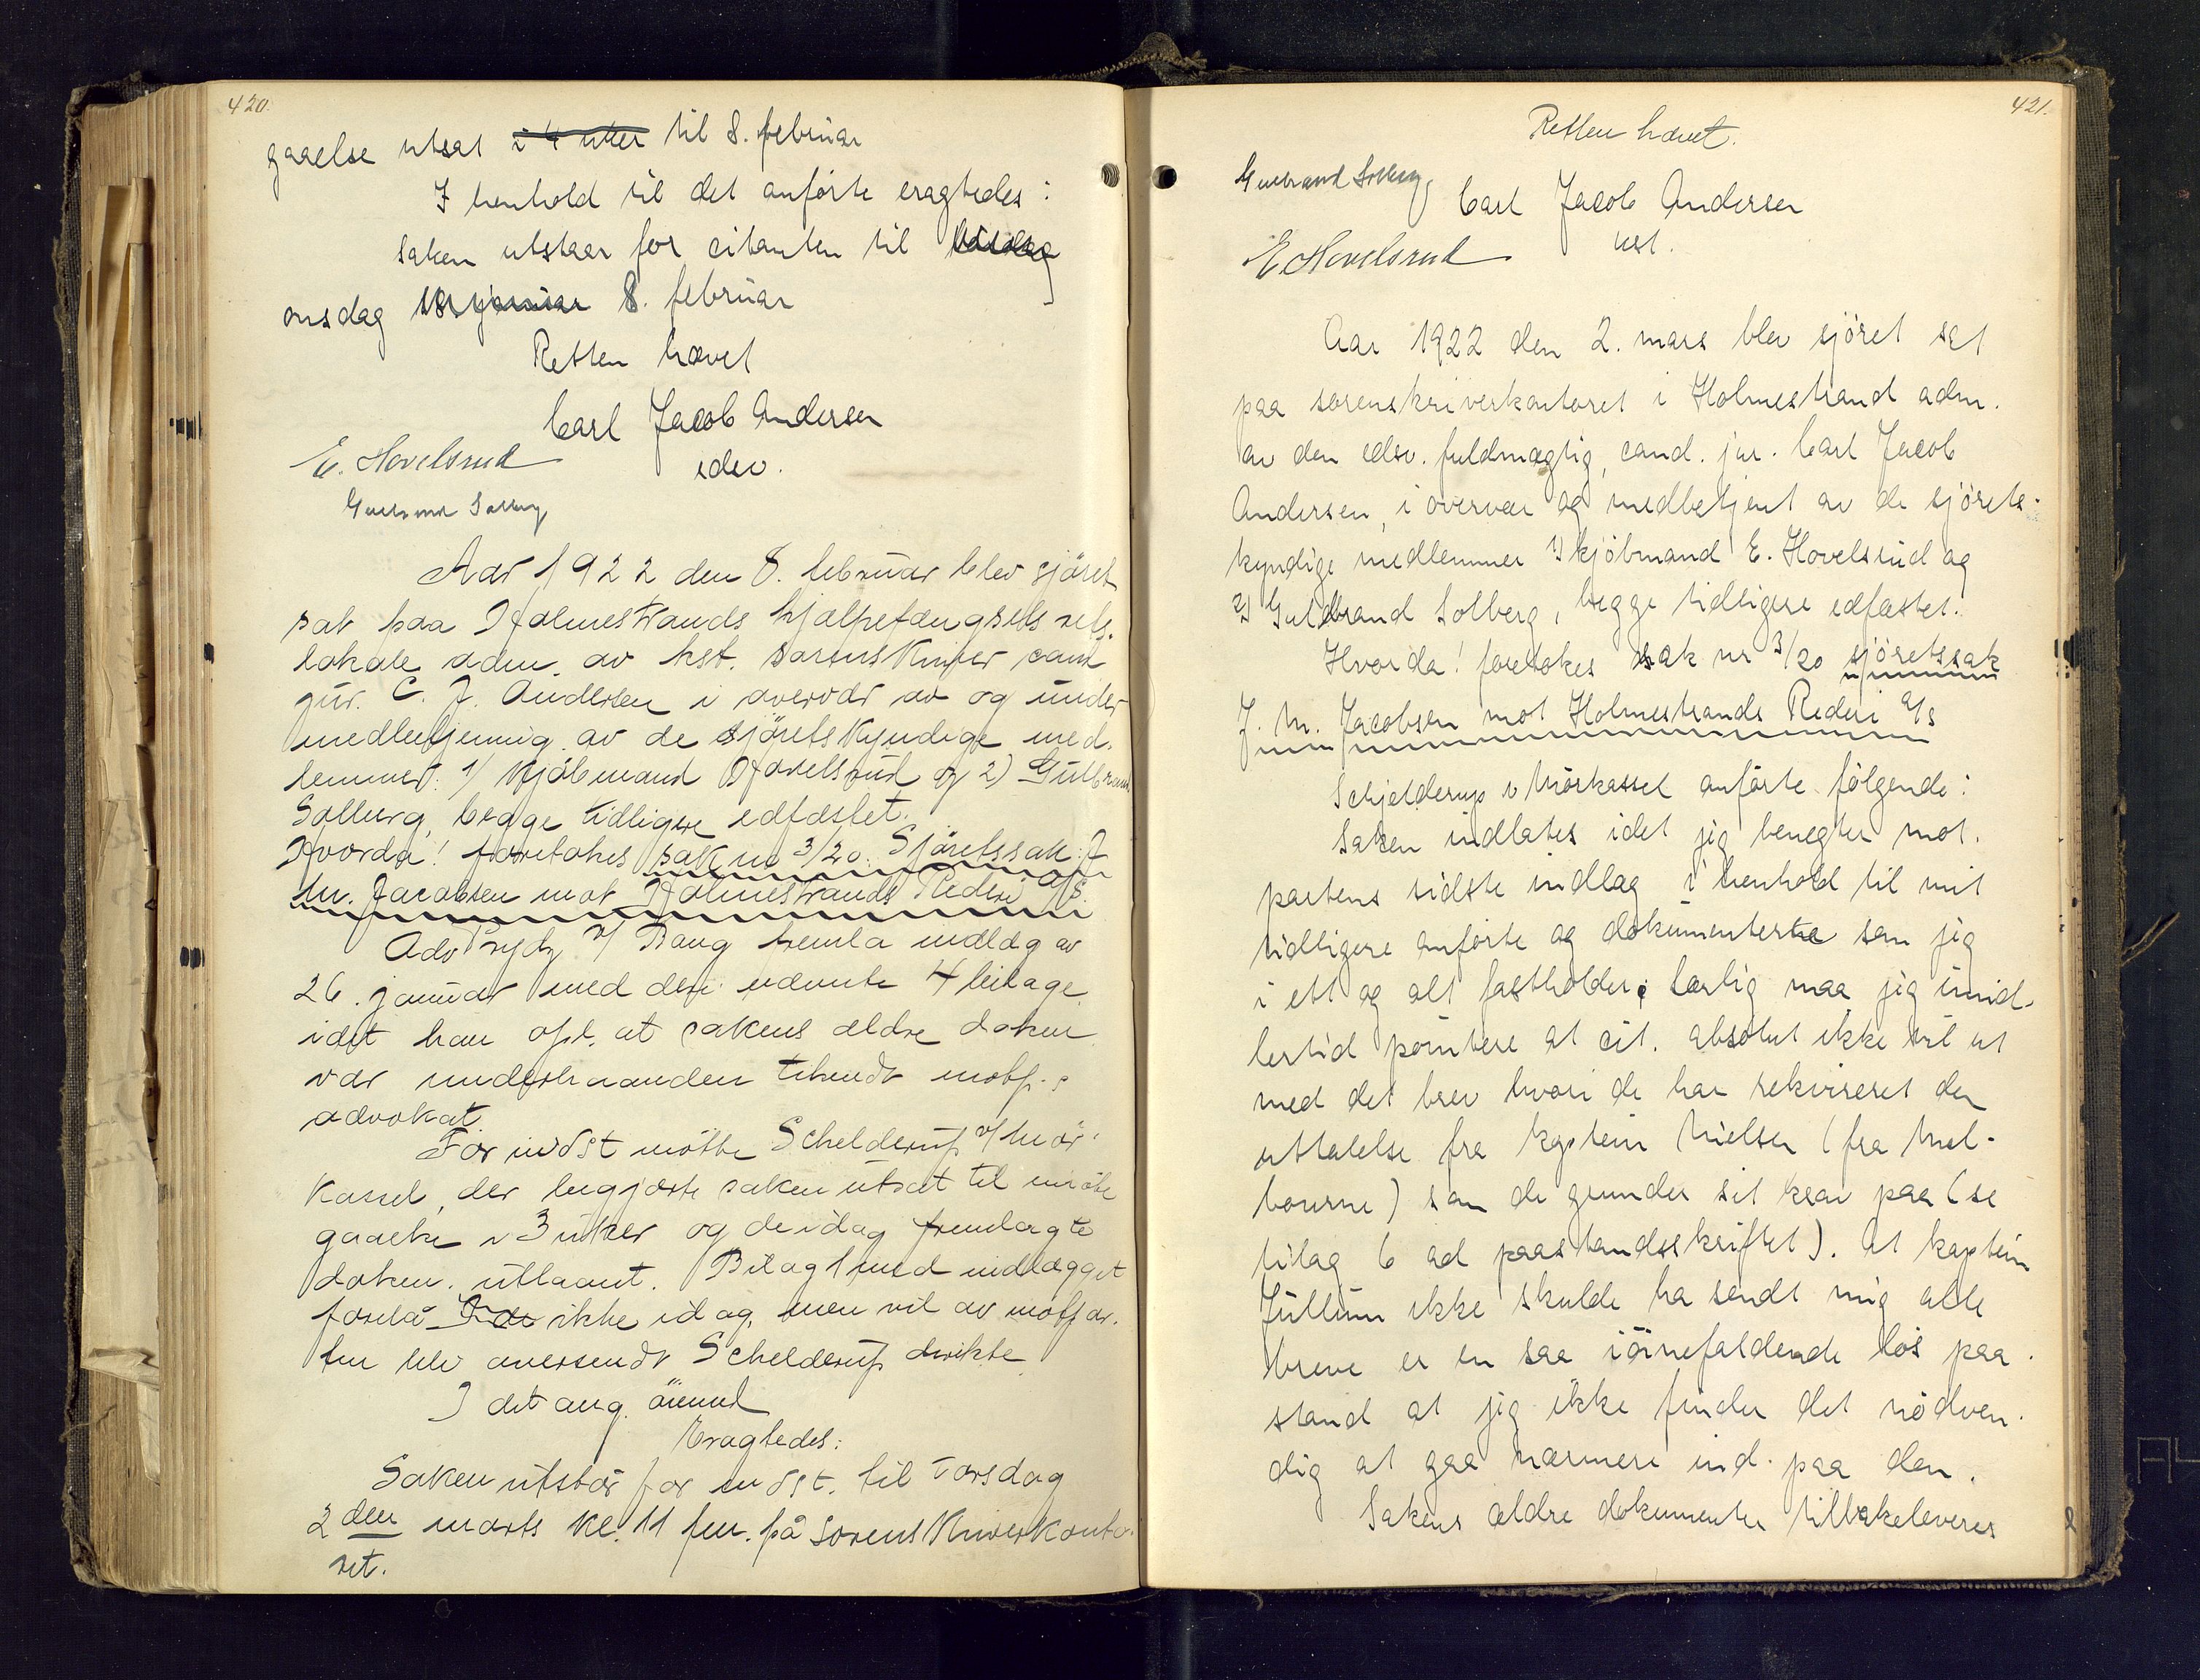 420.
gaaelse utsat i 4 uker til 8. februar
I henhold til det anførte eragtedes:
Saken utstaar for citanten til
onsdag 18. januar 8. februar
Retten hævet
Carl Jacob Andersen
E. Hovelsrud
edsv.
Gulbrand Solberg
Aar 1922 den 8. februar blev sjöret
sat paa Holmestrands hjælpefængsels rets-
lokale adm. av kst. sorenskriver cand
jur. C. J. Andersen i overvær av og under
medbetjening av de sjöretskyndige med-
lemmer: 1/ Kjöbmand Hovelsrud og 2) Gulbrand
Solberg, begge tidligere edfæstet.
Hvorda! foretokes sak no 3/20. Sjöretssak: J
M. Jacobsen mot Holmestrands Rederi A/S.
Adv Prydz v/ Bang fremla indlæg av
26. januar med deri nævnte 4 bilage
idet han opl. at sakens ældre dokum
var underhaanden tilsendt motp.s
advokat.
For indst mötte Schelderup v/ Mör-
kassel, der begjærte saken utsat til imöte
gaaelse i 3 uker og de idag fremlagte
dokum. utlaant. Bilag 1 med indlægget
forelå ikke idag, men vil av motpar-
ten blir oversendt Schelderup direkte
I det ang. öiemed
Eragtedes:
Saken utstår for indst. til torsdag
2den marts kl. 11 fm. på Sorenskriverkonto-
ret.
421.
Retten hævet.
Gulbrand Solberg
Carl Jacob Andersen
E Hovelsrud
kst.
Aar 1922 den 2. mars blev sjöret sat
paa sorenskriverkontoret i Holmestrand adm.
av den edsv. fuldmægtig, cand. jur. Carl Jacob
Andersen, i overvær og medbetjent av de sjörets-
kyndige medlemmer 1) kjöbmand E. Hovelsrud og
2) Gulbrand Solberg, begge tidligere edfæstet.
Hvorda! foretokes sak nr 3/20 sjöretssak
J. M. Jacobsen mot Holmestrands Rederi A/S
Schjelderup v Mörkassel anförte fölgende:
Saken indlates idet jeg benegter mot-
partens sidste indlæg i henhold til mit
tidligere anförte og dokumenterte som jeg
i ett og alt fastholder. Særlig maa jeg imid-
lertid pointere at cit. absolut ikke vil ut
med det brev hvori de har rekvireret den
uttalelse fra kaptein Nielsen (fra Mel-
bourne) som de grunder sit krav paa (se
bilag 6 ad paastandsskriftet). At kaptein
Jullum ikke skulde ha sendt mig alle
breve er en saa iöinefaldende lös paa-
stand at jeg ikke finder det nödven-
dig at gaa nærmere ind paa den.
Sakens ældre dokumenter tilbakeleveres